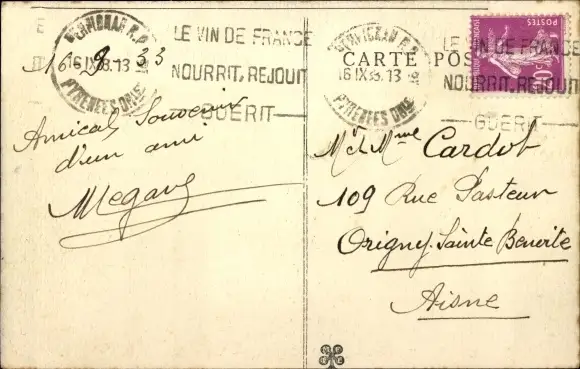 PERPIGNAN R.P.
16 IX 33. 13
PYRENEES ORles
LE VIN DE FRANCE
NOURRIT, REJOUIT
GUERIT
16 9 33
Amical Souvenir
d'un ami
CARTE POS
PERPIGNAN R.P.
16 IX 33. 13
PYRENEES ORles
LE VIN DE FRANCE
NOURRIT, REJOUIT
GUERIT
POSTES
Mr et Mme Cardot
109 Rue Pasteur
Origny-Sainte Benoite
Aisne